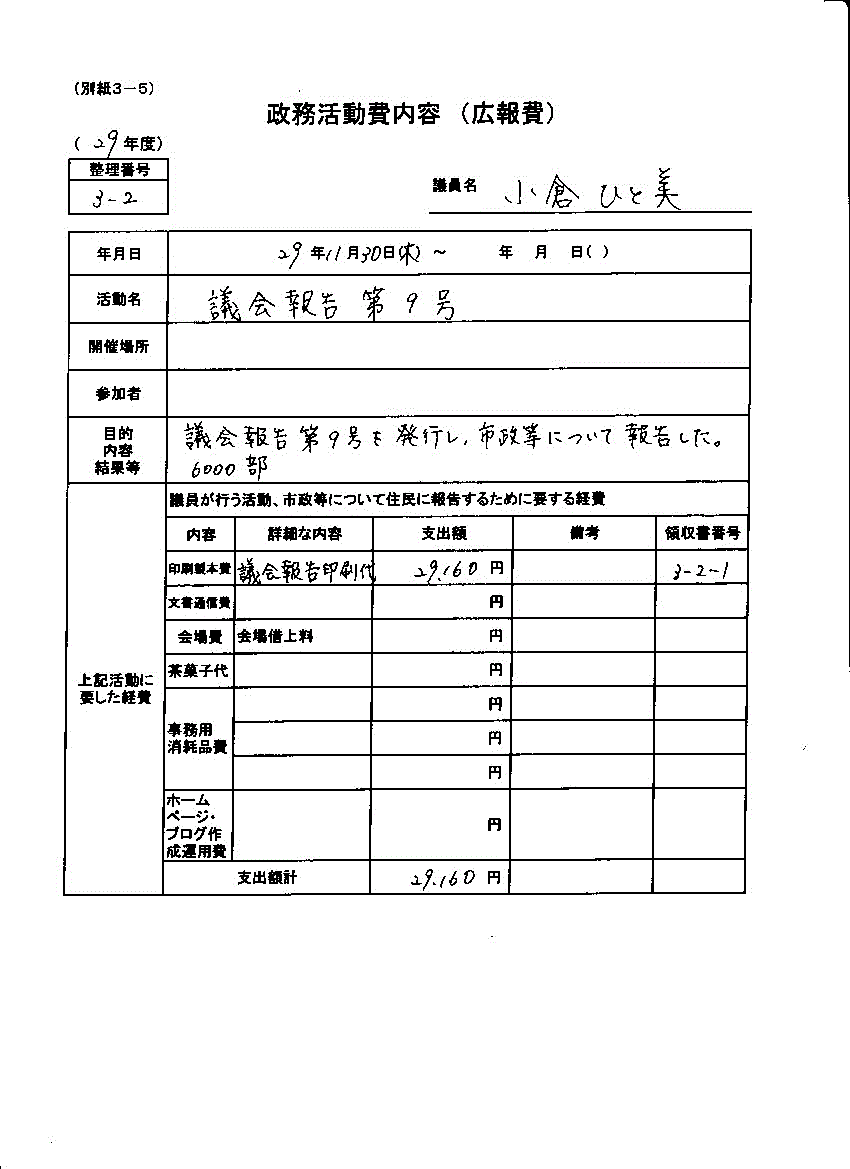 （別紙3－5）
政務活動費内容（広報費）
（29年度）
整理番号
3-2
議員名 小倉ひと美
年月日 29年11月30日(木) ～ 年 月 日( )
活動名 議会報告 第9号
開催場所
参加者
目的
内容
結果等
議会報告第9号を発行し、市政等について報告した。
6000部
上記活動に
要した経費
議員が行う活動、市政等について住民に報告するために要する経費
内容 詳細な内容 支出額 備考 領収書番号
印刷製本費 議会報告印刷代 29,160円 3-2-1
文書通信費 円
会場費 会場借上料 円
茶菓子代 円
事務用
消耗品費
円
円
円
ホーム
ページ・
ブログ作
成運用費
円
支出額計 29,160円